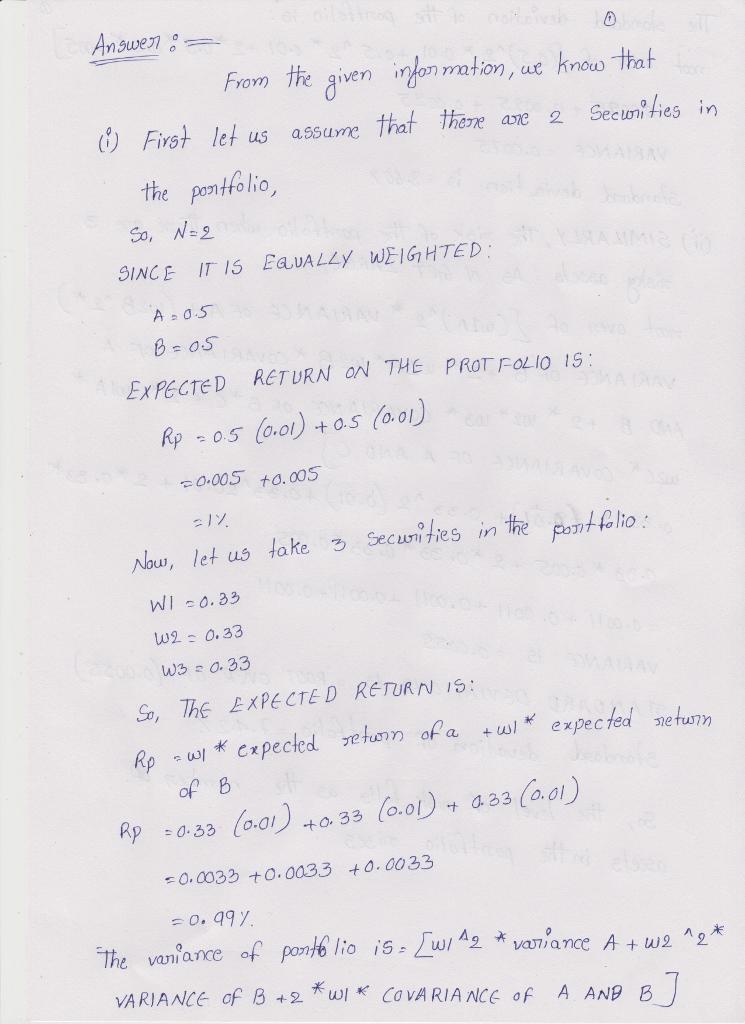 ①
Answer :-
From the given information, we know that
(i) First let us assume that there are 2 securities in
the portfolio,
So, N=2
SINCE IT IS EQUALLY WEIGHTED:
A = 0.5
B = 0.5
EXPECTED RETURN ON THE PROTFOLIO IS:
Rp = 0.5 (0.01) + 0.5 (0.01)
= 0.005 + 0.005
= 1%.
Now, let us take 3 securities in the portfolio:
W1 = 0.33
W2 = 0.33
W3 = 0.33
So, THE EXPECTED RETURN IS:
Rp = w1 * expected return of a + w1 * expected return
of B
Rp = 0.33 (0.01) + 0.33 (0.01) + 0.33 (0.01)
= 0.0033 + 0.0033 + 0.0033
= 0.99%.
The variance of portfolio is = [w1^2 * variance A + w2^2 *
VARIANCE OF B + 2 * w1 * COVARIANCE OF A AND B]